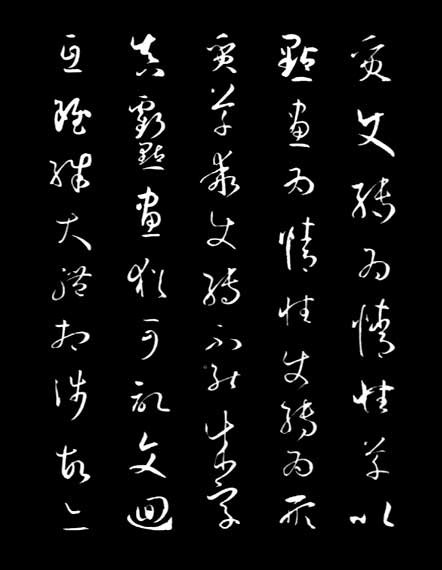 質使轉為情性草以
點畫為情性使轉為形
質草乖使轉不能成字
真虧點畫猶可記文迴
互雖殊大體相涉故亦